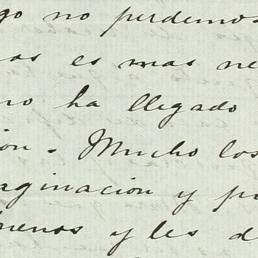 go no perdemos
as es mas ne
no ha llegado
ión. Mucho los
aginación y po
buenos y les d